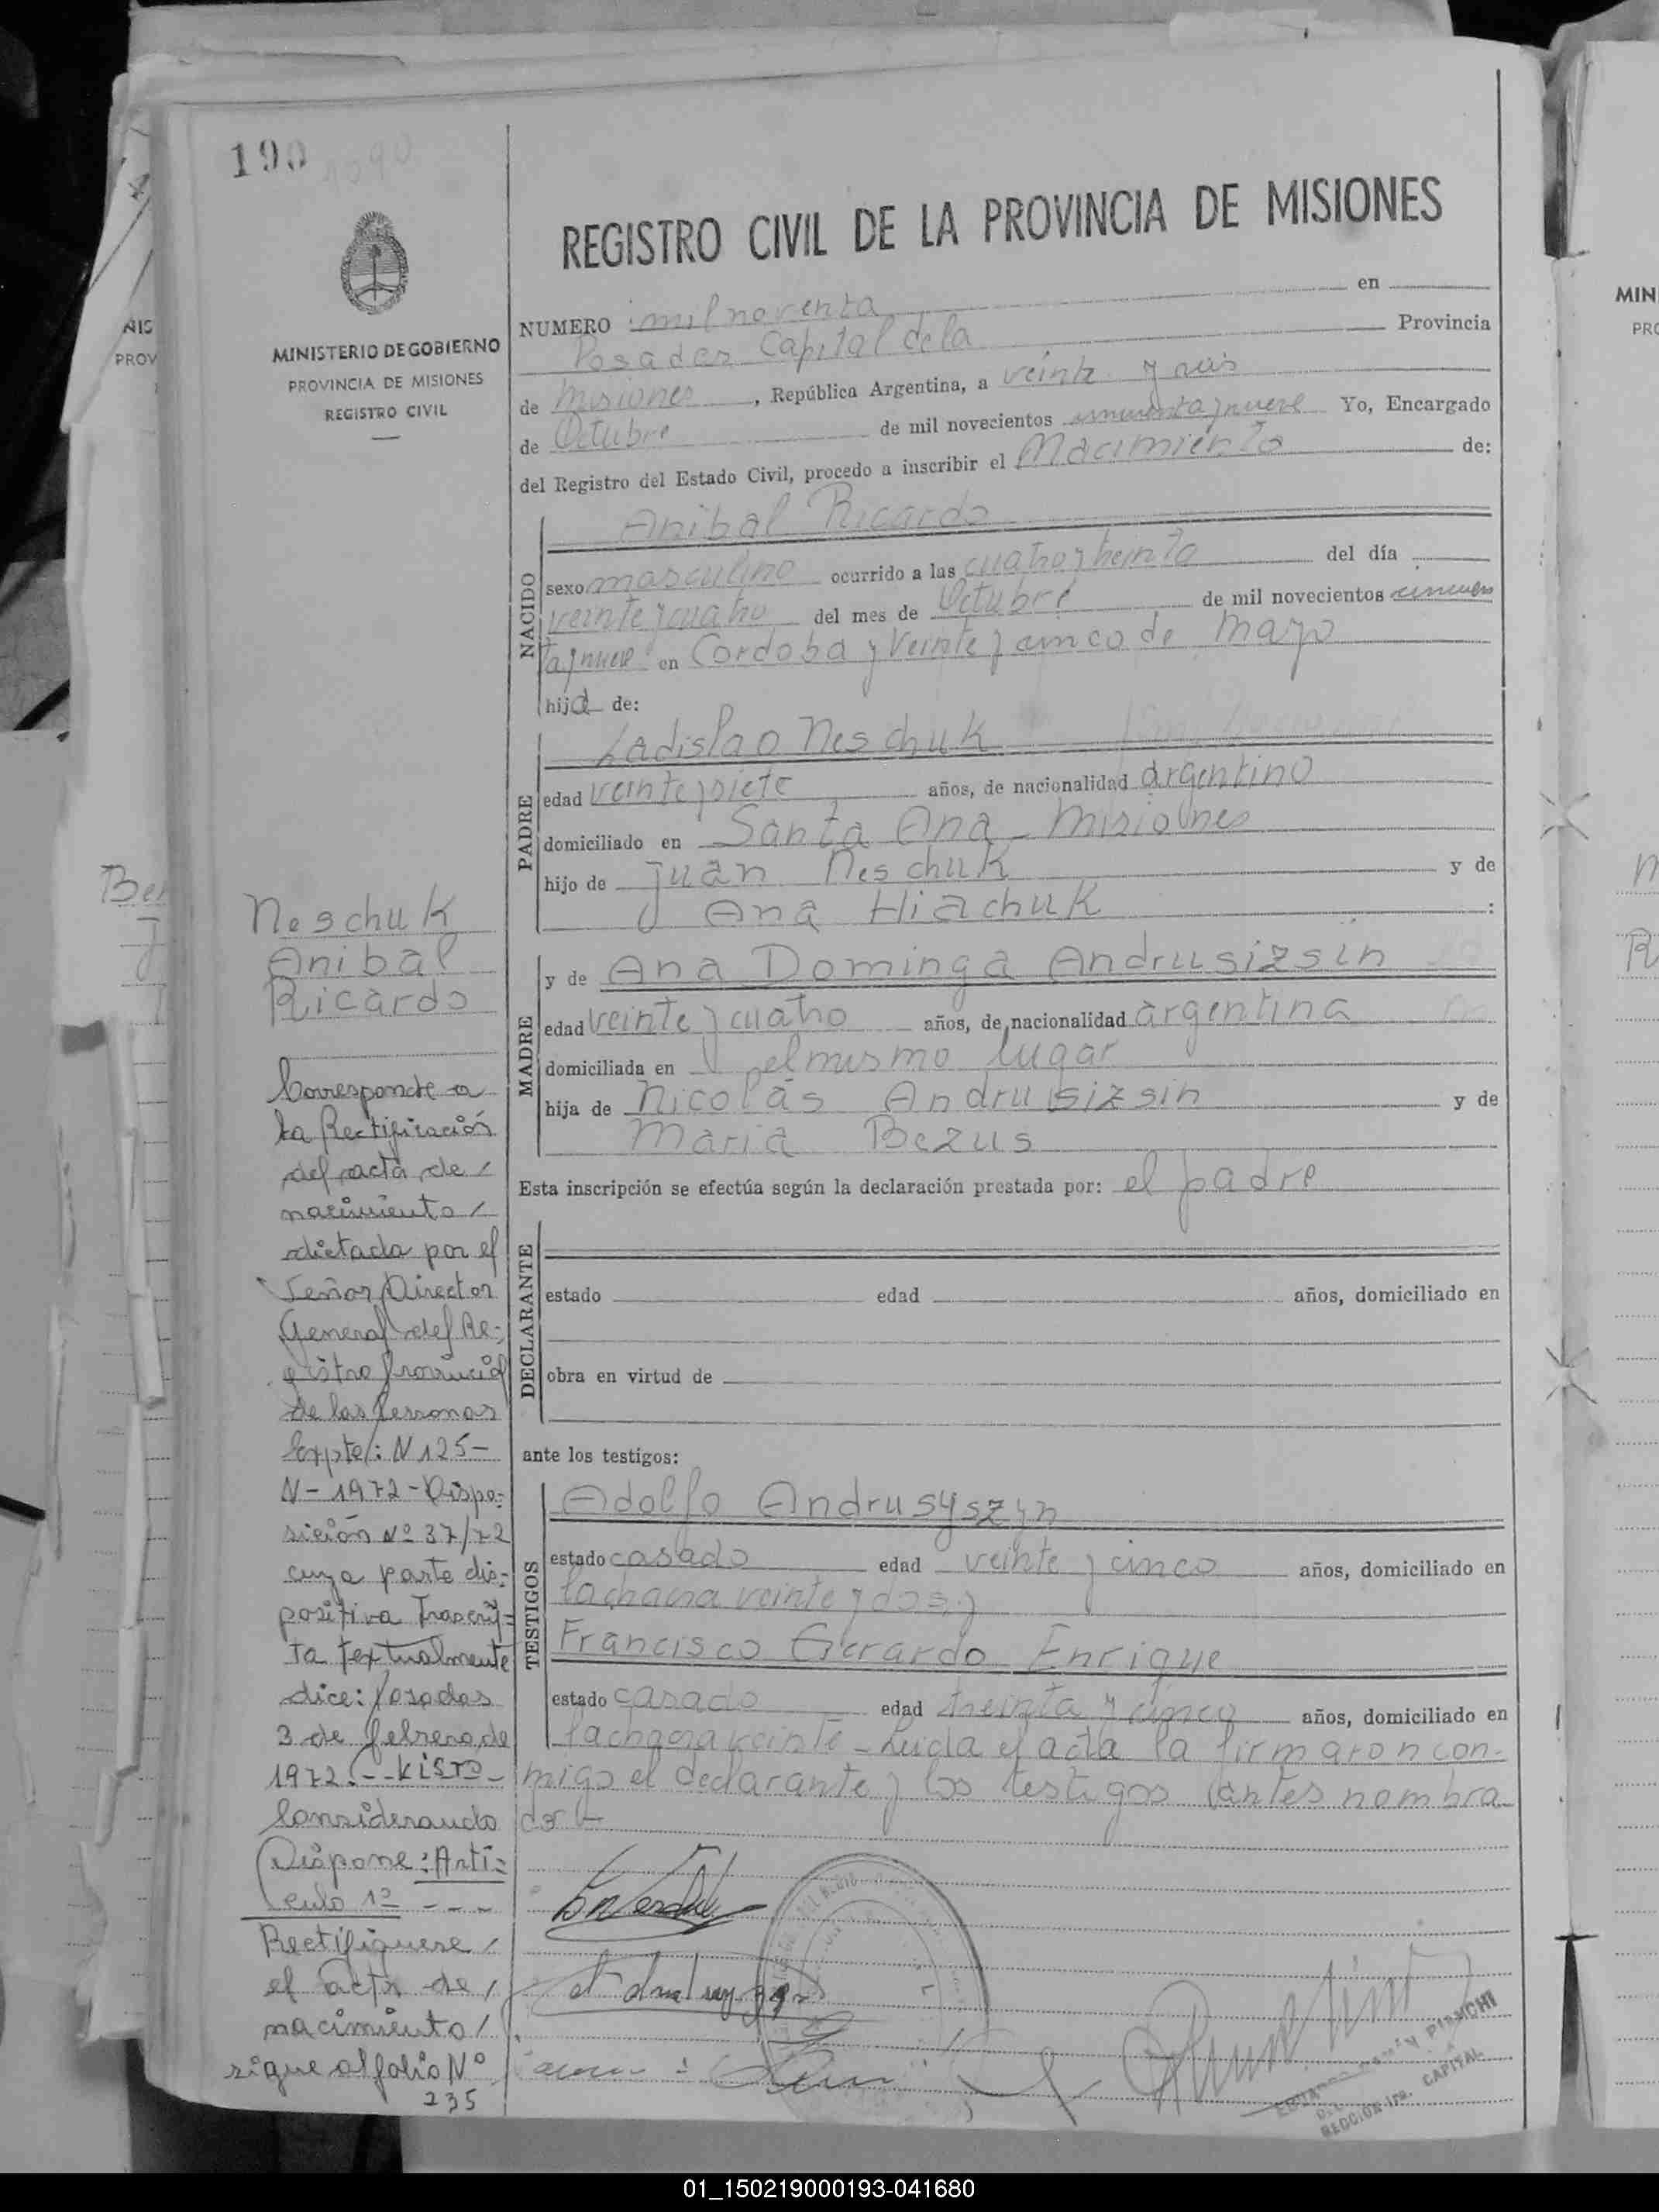 190
1090
MINISTERIO DE GOBIERNO
PROVINCIA DE MISIONES
REGISTRO CIVIL
REGISTRO CIVIL DE LA PROVINCIA DE MISIONES
NUMERO mil noventa en
Posadas Capital de la Provincia
de Misiones, República Argentina, a veinte y seis
de Octubre de mil novecientos cincuenta y nueve Yo, Encargado
del Registro del Estado Civil, procedo a inscribir el Nacimiento de:
NACIDO
Anibal Ricardo
sexo masculino ocurrido a las cuatro y treinta del día
veinte y cuatro del mes de Octubre de mil novecientos cincuen
ta y nueve en Cordoba y Veinte y cinco de Mayo
hijo de:
PADRE
Ladislao Neschuk
edad veinte y siete años, de nacionalidad argentino
domiciliado en Santa Ana - Misiones
hijo de Juan Neschuk y de
Ana Hiachuk :
MADRE
y de Ana Dominga Andrusizsin
edad veinte y cuatro años, de nacionalidad argentina
domiciliada en el mismo lugar
hija de Nicolás Andrusizsin y de
Maria Bezus
Esta inscripción se efectúa según la declaración prestada por: el padre
DECLARANTE
estado edad años, domiciliado en
obra en virtud de
ante los testigos:
TESTIGOS
Adolfo Andrusyszyn
estado casado edad veinte y cinco años, domiciliado en
la chacra veinte y dos y
Francisco Gerardo Enrique
estado casado edad treinta y cinco años, domiciliado en
la chacra veinte - Leida el acta la firmaron con-
migo el declarante y los testigos antes nombra
dos -
Neschuk
Anibal
Ricardo
Corresponde a
la Rectificación
del acta de /
nacimiento /
dictada por el
Señor Director
General del Re-
gistro Provincial
de las Personas
Expte/: N 125-
N - 1972 - Dispo-
sición Nº 37/72
cuya parte dis-
positiva Trascrip-
ta textualmente
dice: Posadas
3 de febrero de
1972. - VISTO -
Considerando
Dispone: Artí-
culo 1º - - -
Rectifiquese /
el acta de /
nacimiento /
sigue al folio Nº
235
PIANCHI
SECCION 1ra. CAPITAL
MIN
PRO
NIS
PROV
Ber
01_150219000193-041680